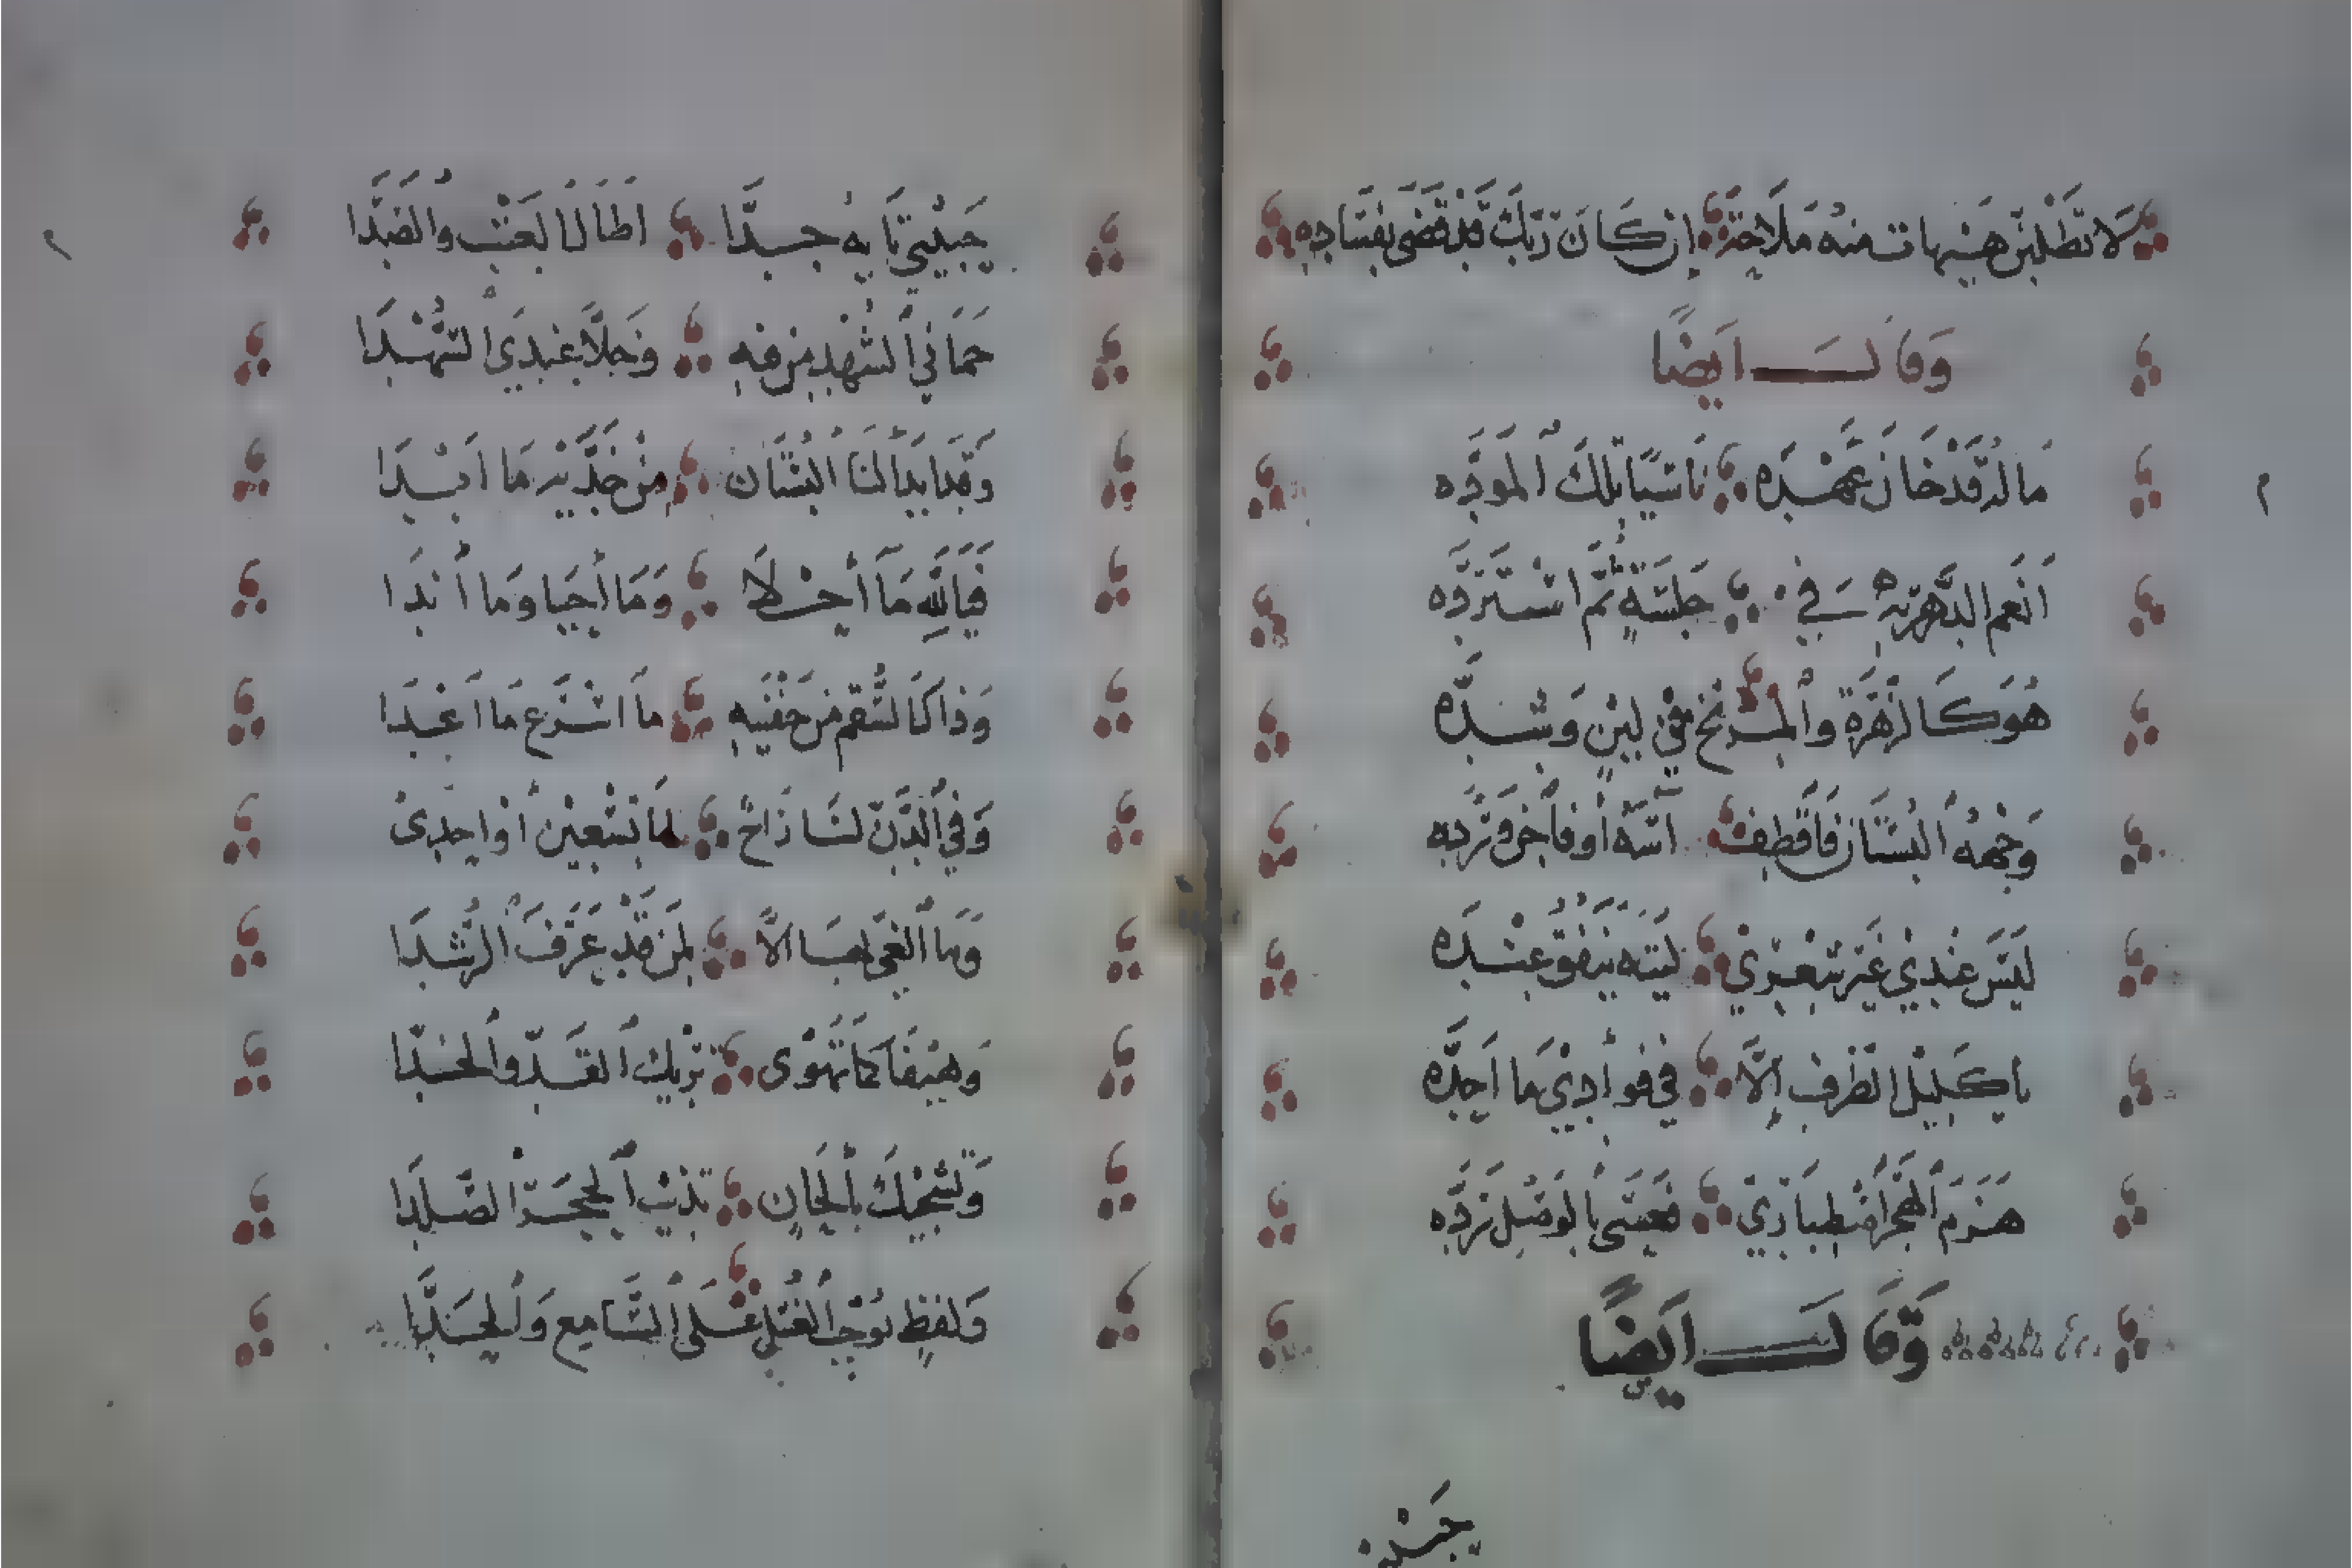 لَا تَطْلُبَنْ هَيْهَات مِنْهُ مَلَاحَةً إِنْ كَانَ رَبُّكَ قَدْ قَضَى بِفَسَادِهِ
وَقَالَ اَيْضًا
مَا لَهُ قَدْ خَانَ عَهْدَه نَاسِيًا تِلْكَ الْمَوَدَّه
اَنْعَم الدَّهْرُ بِهِ فِي جَلْسَةٍ ثُمَّ اسْتَرَدَّه
هُوَ كَالزُّهَرَةِ وَالْمِرِّيخِ فِي لِيْنٍ وَشِدَّه
وَجْهُهُ الْبُسْتَان فَاقْطِف آسَهُ أَو فَاجْنِ وَرْدِه
لَيْسَ عِنْدِيْ غَيْر شِعْرِيْ لَيْتَهُ يَنْفُقُ عِنْدَه
يا كَلِيْل الطَّرْفِ إِلَّا فِي فُوأَدِيْ مَا اَحِدَّه
هَزَمَ الْهَجْرُ اصْطِبَارِيْ فَعَسَى بِالْوَصْلِ نَرْدُّه
وَقَالَ اَيْضًا
حَبِيْبِيْ تَايِهٌ جِدَّا اَطَالَ الْعَتْبَ وَالصَّدَّا
حَمَانِي الشُّهْدَ مِنْ فِهِ وَخَلَّا عِنْدِيَ السُّهْدَا
وَقَد اَبْدَا لَنَا الْبُسْتَان مِنْ خَدَّيْهِ مَا اَبْدَا
فَيَا لِلَّهِ مَا أَحْلَا وَمَا أَحْيَا وَمَا أَنْدَا
وَذَاكَ السُّقْم مِنْ جَفْنَيْهِ مَا اسْرَع مَا اَعْدَا
وَفِي الدَّنِّ لَنَا رَاحٌ
وَمَا الْغَيّ بِهَا الَّا لِمَنْ قَدْ عَرَفَ الرُّشْدَا
وَهَيْفَا كَمَا تَهْوَى تُرِيْكَ الْقَدَّ وَالْخَدَّا
وَتُشْجِيْكَ بِأَلْحَانٍ تُذِيْبُ الْحَجَرَ الصَّلْدَا
وَلَفْظٍ يُوْجِبُ الْغُسْل عَلَى السَّامِعِ وَالْحَدَّا